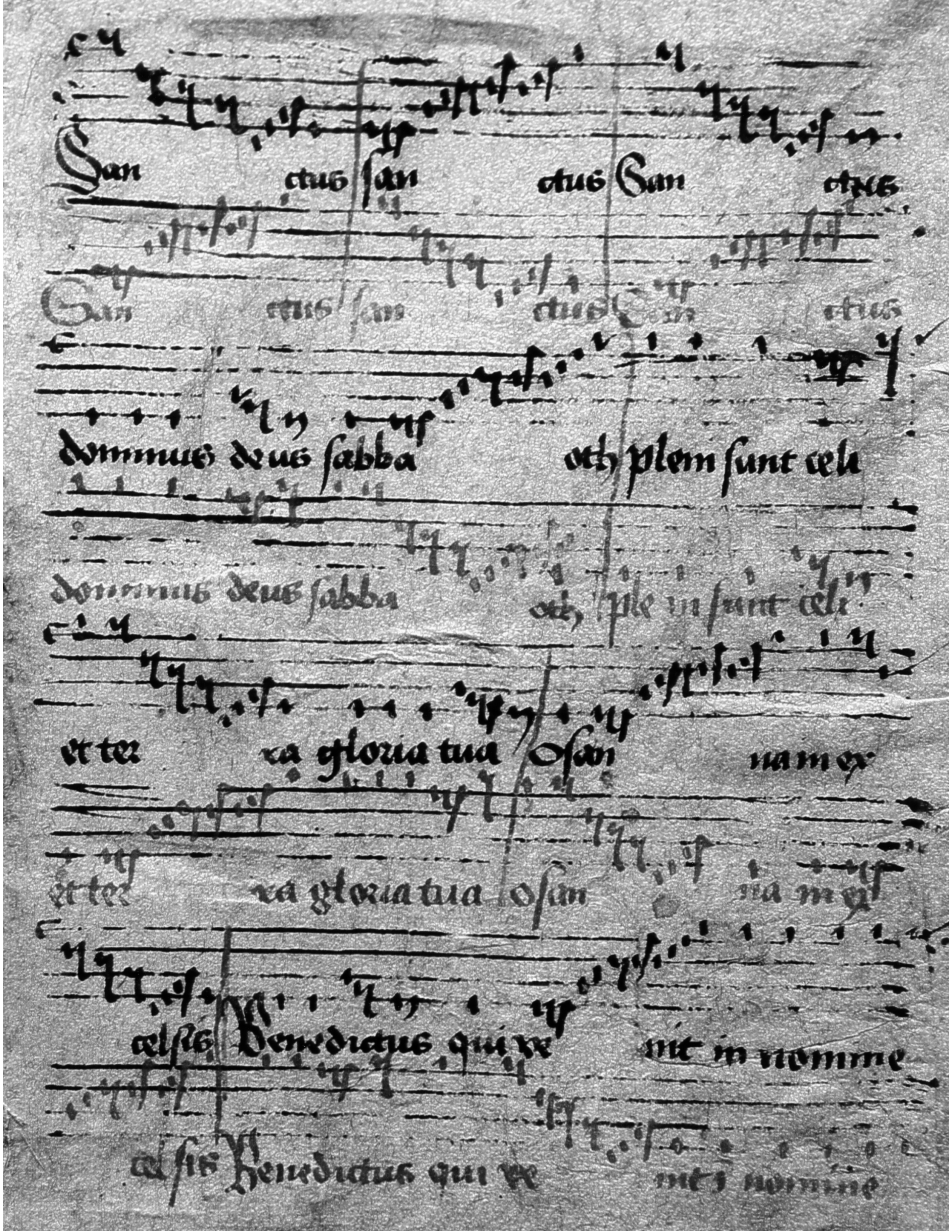 San ctus san ctus San ctus
San ctus san ctus San ctus
dominus deus sabba oth pleni sunt celi
dominus deus sabba oth ple ni sunt celi
et ter ra gloria tua Osan na in ex
et ter ra gloria tua Osan na in ex
celsis Benedictus qui ve nit in nomine
cel sis Benedictus qui ve nit i nomine